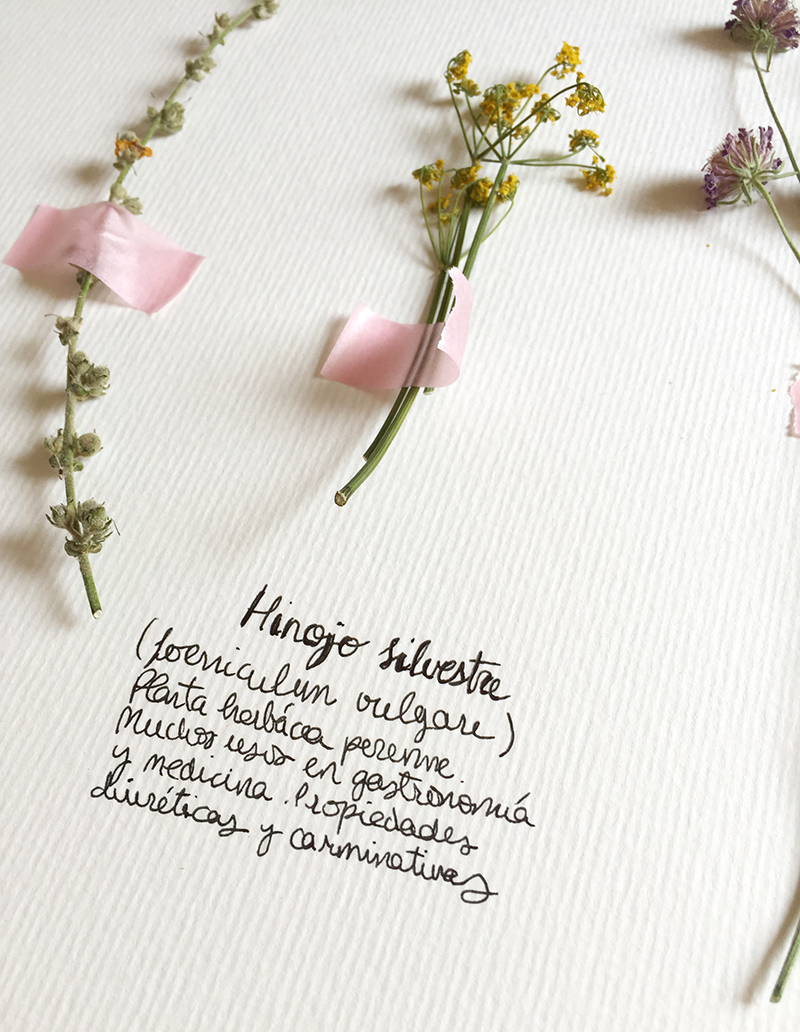 Hinojo silvestre
(foeniculum vulgare)
Planta herbácea perenne.
Muchos usos en gastronomía
y medicina. Propiedades
diuréticas y carminativas